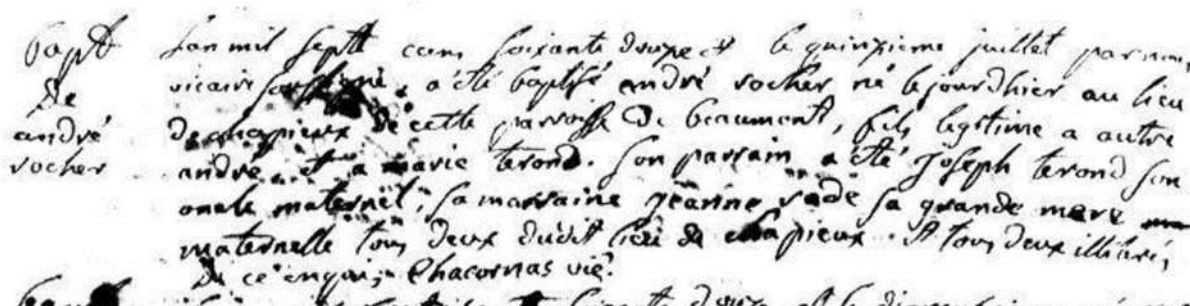 bapt
de
andré
rocher
Lan mil sept cens soixante douze et le quinzieme juillet par nous
vicaire soussigné, a été baptisé andré rocher né le jourdhier au lieu
de chapieux de cette parroisse de beaumont, fils legitime a autre
andré et a marie terond. son parrain a été joseph terond son
oncle maternel, sa marraine jeanne sade sa grande mere
maternelle tous deux dudit lieu de chapieux. et tous deux illiterés
de ce enquis, Chacornas vic.